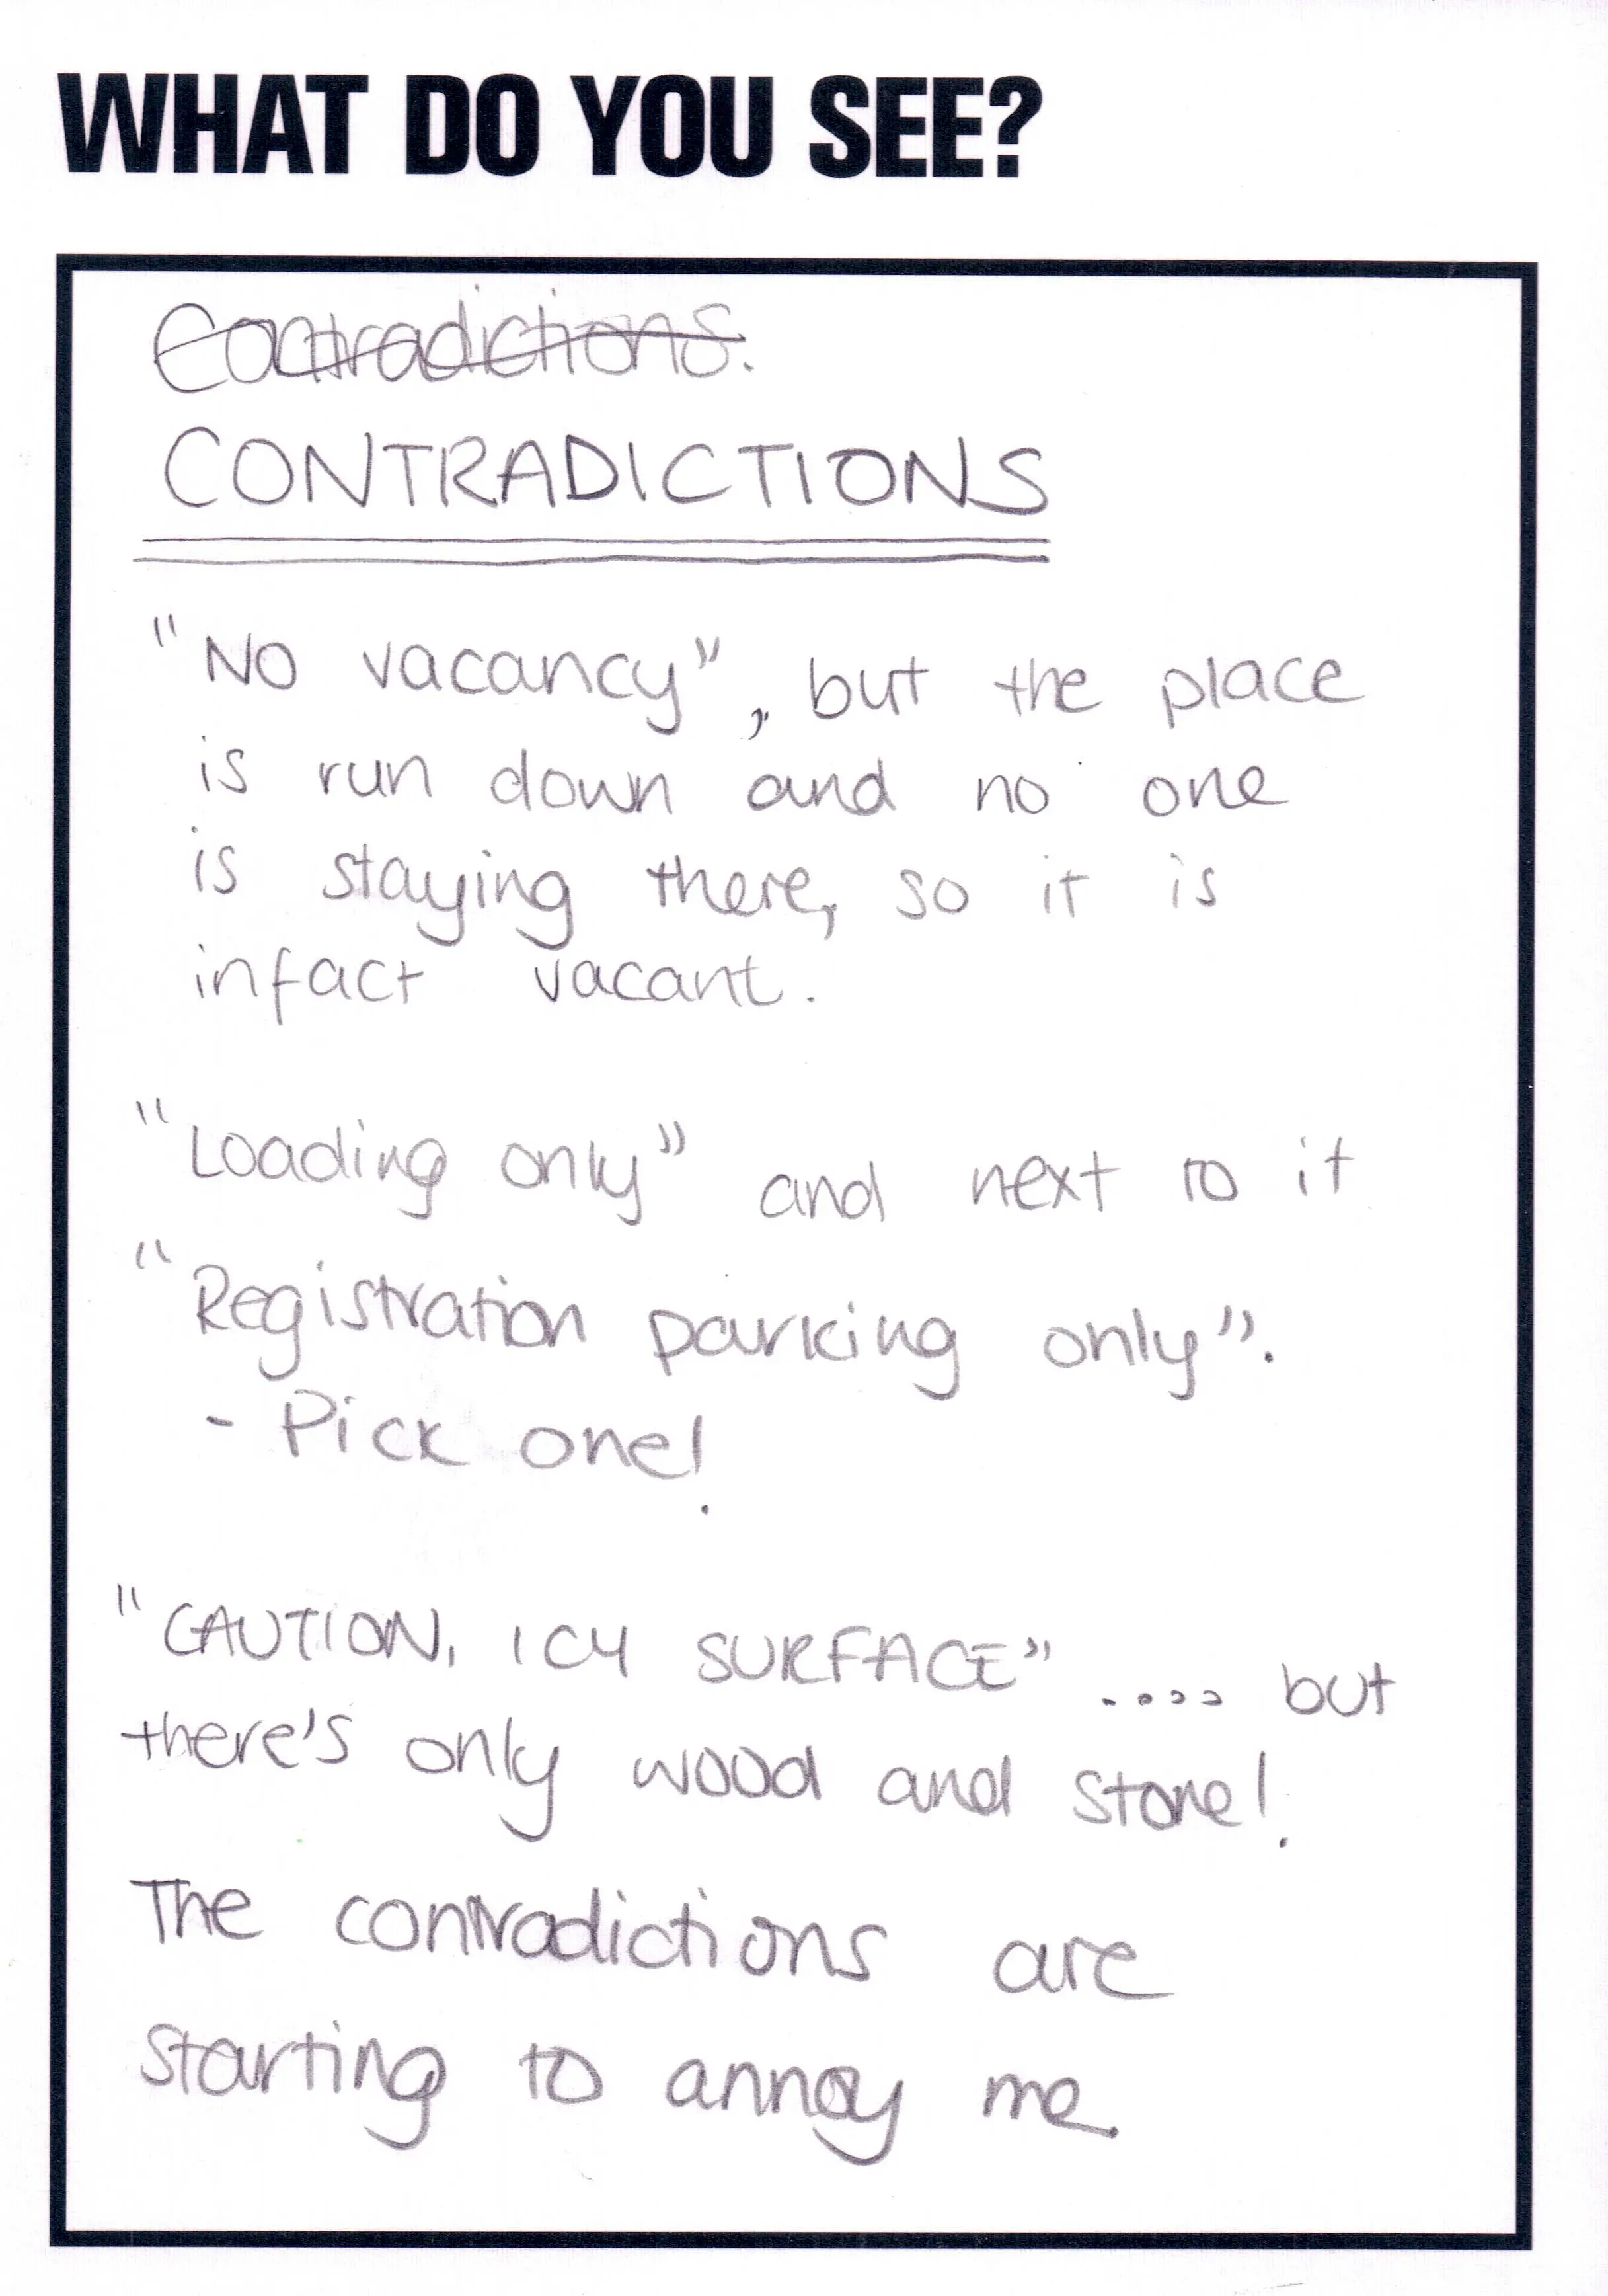 WHAT DO YOU SEE?
Contradictions.
CONTRADICTIONS
"No vacancy", but the place
is run down and no one
is staying there, so it is
infact vacant.
"Loading only" and next to it
"Registration parking only".
- Pick one!
"CAUTION, ICY SURFACE" .... but
there's only wood and stone!
The contradictions are
starting to annoy me.